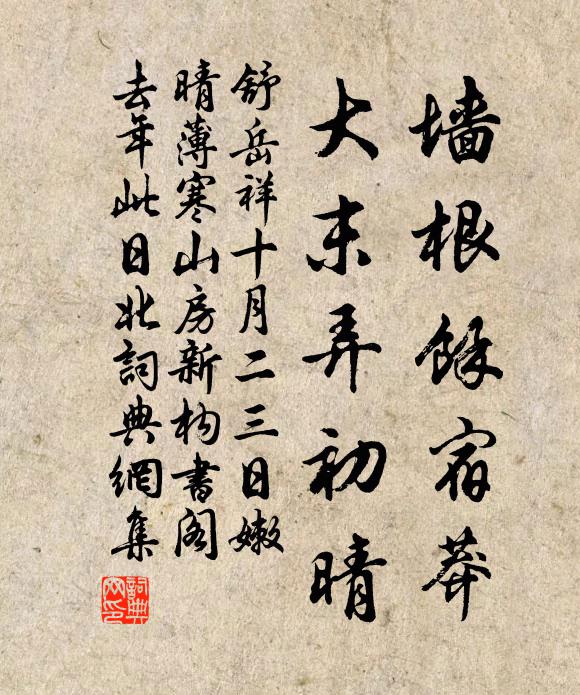 墙根餘宿莽
大末弄初晴
舒岳祥十月二三日嫩
晴薄寒山房新构書阁
去年此日北詞典網集
詞典
网印